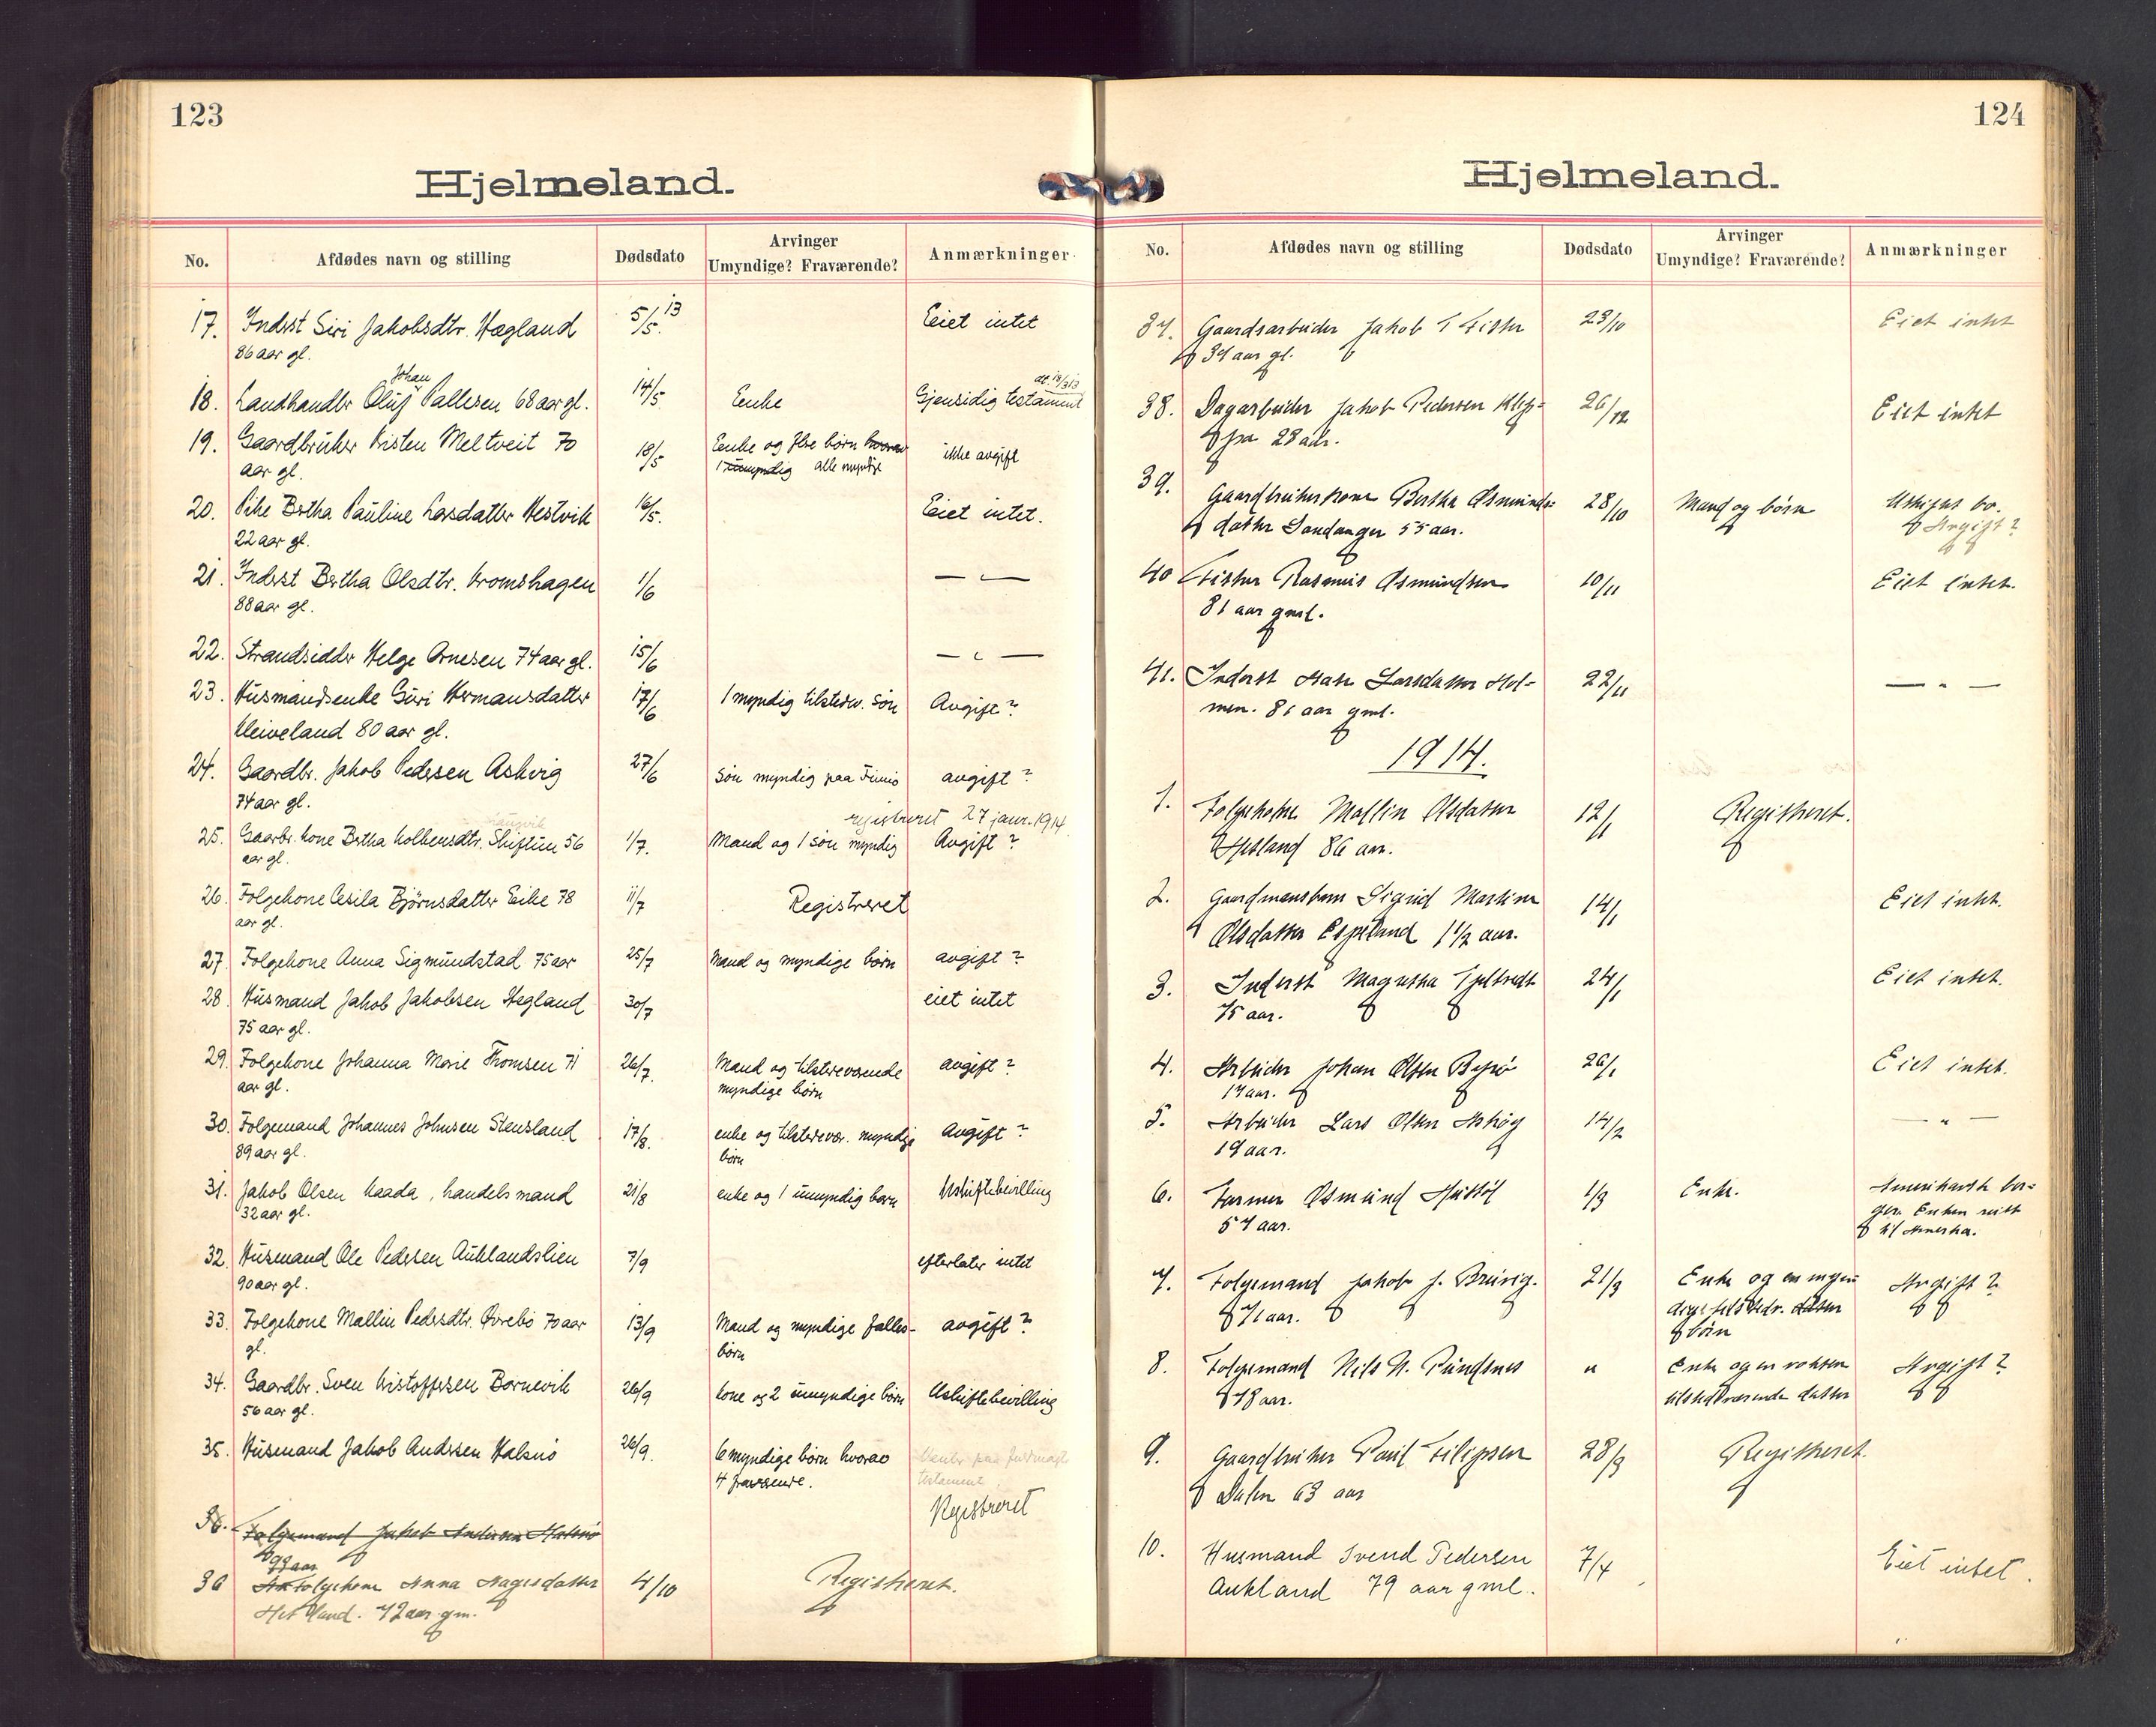 123
Hjelmeland.
No. Afdødes navn og stilling Dødsdato Arvinger Umyndige? Fraværende? Anmærkninger
17. Inderst Siri Jakobsdtr. Hægland 5/5 13 Eiet intet
86 aar gl.
Johan dt. 19/3 13
18. Landhandler Oluf Pallesen 68 aar gl. 14/5 Enke Gjensidig testament
19. Gaardbruker Kristen Meltveit 70 18/5 Enke og flre børn hvorav ikke avgift
aar gl. 1 umyndig alle myndige
20. Pike Bertha Pauline Larsdatter Hestvik 16/5. Eiet intet.
22 aar gl.
21. Inderst Bertha Olsdtr. Kromshagen 1/6 — " —
88 aar gl.
22. Strandsidder Helge Arnesen 74 aar gl. 15/6 — " —
23. Husmandsenke Guri Hermansdatter 17/6 1 myndig tilstedev. søn Avgift?
Kleiveland 80 aar gl.
24. Gaardbr. Jakob Pedersen Askvig 27/6 søn myndig paa Finnø avgift?
74 aar gl.
registreret 27 janr. 1914.
25. Gaarbr. kone Bertha Kolbensdtr. Skiftun 56 1/7. Mand og 1 søn myndig Avgift?
aar gl.
26. Folgekone Cesila Bjørnsdatter Eike 78 11/7 Registreret
aar gl.
27. Folgekone Anna Sigmundstad 75 aar 25/7 Mand og myndige børn avgift?
28. Husmand Jakob Jakobsen Hægland 30/7 eiet intet
75 aar gl.
29. Folgekone Johanna Marie Thomsen 71 26/7. Mand og tilsteværende avgift?
aar gl. myndige børn
30. Folgemand Johannes Johnsen Stensland 17/8. enke og tilstedevær. myndige Avgift?
89 aar gl. børn
31. Jakob Olsen Kaada, handelsmand 21/8 enke og 1 umyndig barn Uskiftebevilling
32 aar gl.
32. Husmand Ole Pedersen Auklandslien 7/9 efterlater intet
90 aar gl.
33. Folgekone Mallin Pedersdtr. Øvrebø 70 aar 13/9 Mand og myndige fælles- avgift?
gl. børn
34. Gaardbr. Sven Kristoffersen Børnevik 26/9 kone og 2 umyndige børn Uskiftebevilling
56 aar gl.
35. Husmand Jakob Andersen Halsnø 26/9. 6 myndige børn hvorav
4 fraværende. testament.
Registreret
36. Folgemand Jakob Andersen Halsnø
99 aar
36 Folgekone Anna Aagesdatter 4/10 Registreret.
Hetland. 72 aar gm.
124
Hjelmeland.
No. Afdødes navn og stilling Dødsdato Arvinger Umyndige? Fraværende? Anmærkninger
37. Gaardsarbeider Jakob T Fister 23/10 Eiet intet
37 aar gl.
38. Dagarbeider Jakob Pedersen Klep- 26/12 Eiet intet
pa 28 aar.
39. Gaardbrukerkone Bertha Osmunds- 28/10 Mand og børn Uskiftet bo.
datter Sandanger 55 aar. Avgift?
40 Fister Rasmus Osmundsen 10/11 Eiet intet.
81 aar gml.
41. Inderst Larsdatter Hol- 22/11 — " —
men. 81 aar gml.
1914.
1. Folgekone Mallin Olsdatter 12/1 Registreret.
Hetland 86 aar.
2. Gaardmansbarn Sigrid Martine 14/1 Eiet intet.
Olsdatter Espeland 1 1/2 aar.
3. Inderst Magretha Tjeltveit 24/1 Eiet intet.
75 aar.
4. Arbeider Johan Olsen Byrø 26/1 Eiet intet.
17 aar.
5. Arbeider Lars Olsen 14/2 — " —
19 aar.
6. Farmer Osmund 1/3 Enke. Amerikansk bor-
57 aar. ger. Enken reist
til Amerika.
7. Folgemand Jakob J. Bruvig. 21/3 Enke og en Avgift?
71 aar.
børn
8. Folgemand Nils N. Pundsnes " Enke og en voksen Avgift?
78 aar. tilstedeværende datter
9. Gaardbruker Poul Filipsen 28/3 Registreret.
Dalen 63 aar
10. Husmand Svend Pedersen 7/4 Eiet intet.
Aukland 79 aar gml.